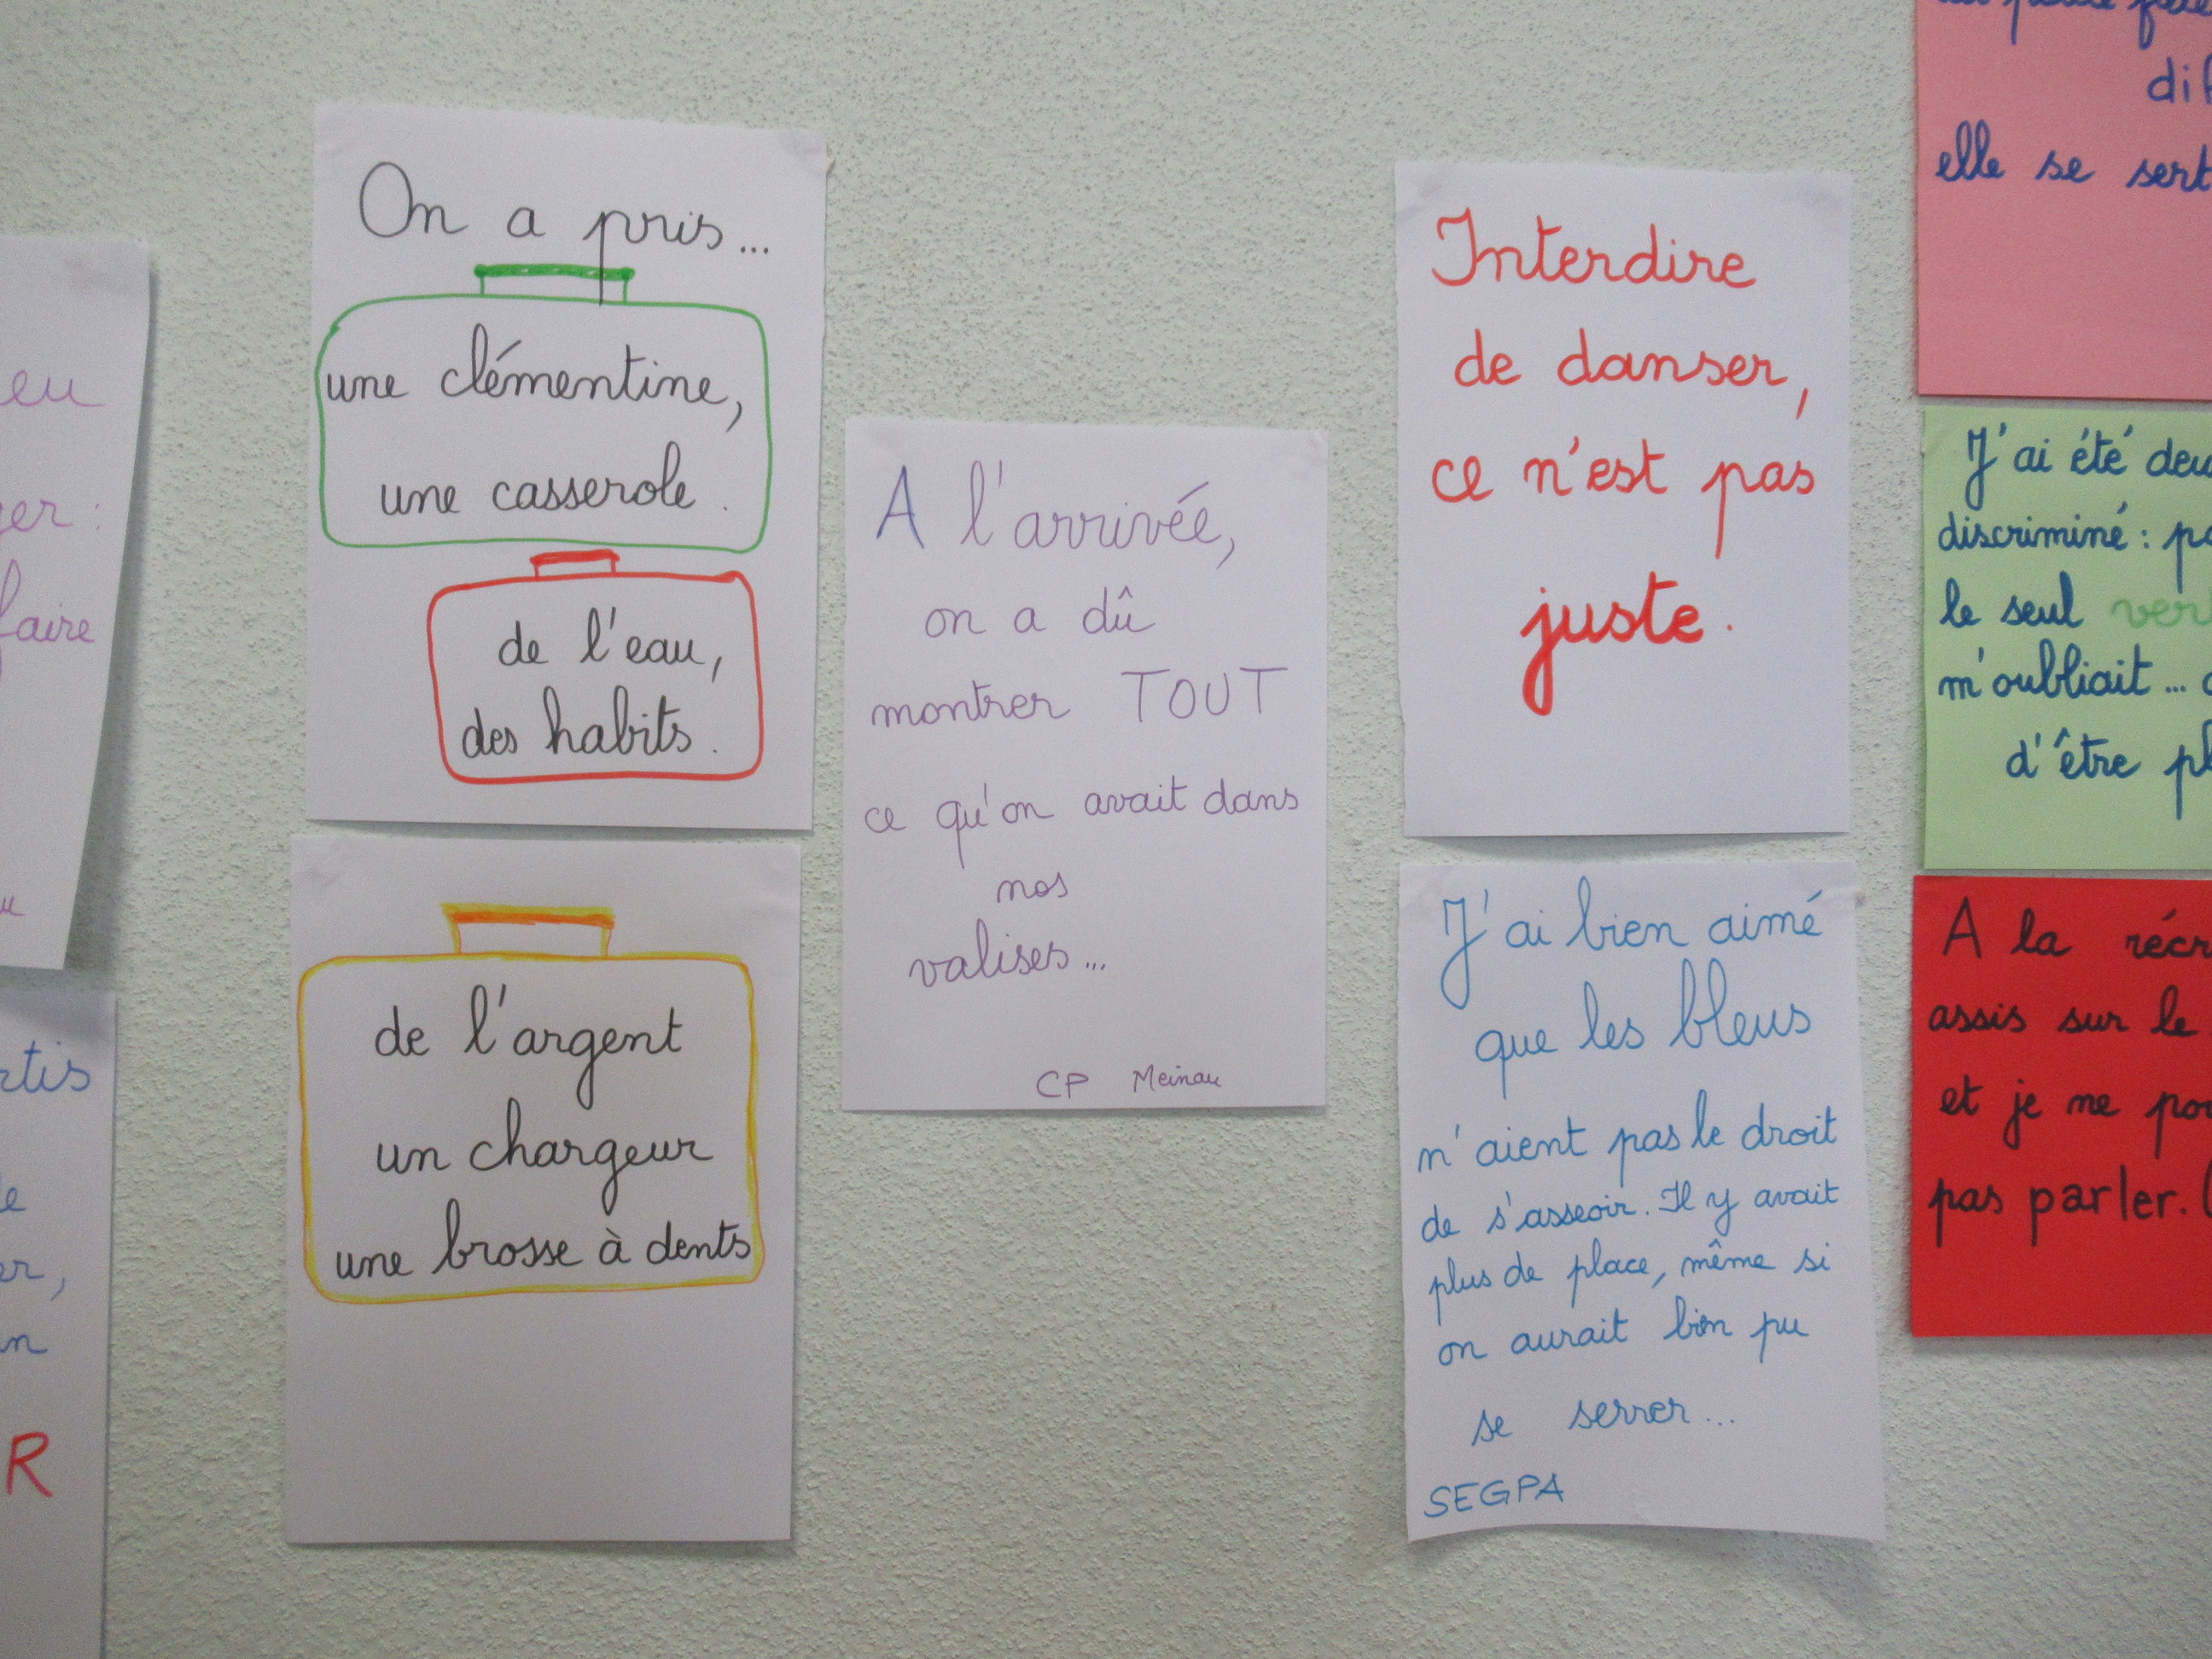 eu
faire
On a pris...
une clémentine,
une casserole.
de l'eau,
des habits.
de l'argent
un chargeur
une brosse à dents
A l'arrivée,
on a dû
montrer TOUT
ce qu'on avait dans
nos
valises...
CP Meinau
Interdire
de danser,
ce n'est pas
juste.
J'ai bien aimé
que les bleus
n'aient pas le droit
de s'asseoir. Il y avait
plus de place, même si
on aurait bien pu
se serrer...
SEGPA
elle se sert
J'ai été
discriminé :
le seul
m'oubliait...
d'être
A la
assis sur le
et je ne
pas parler.
R